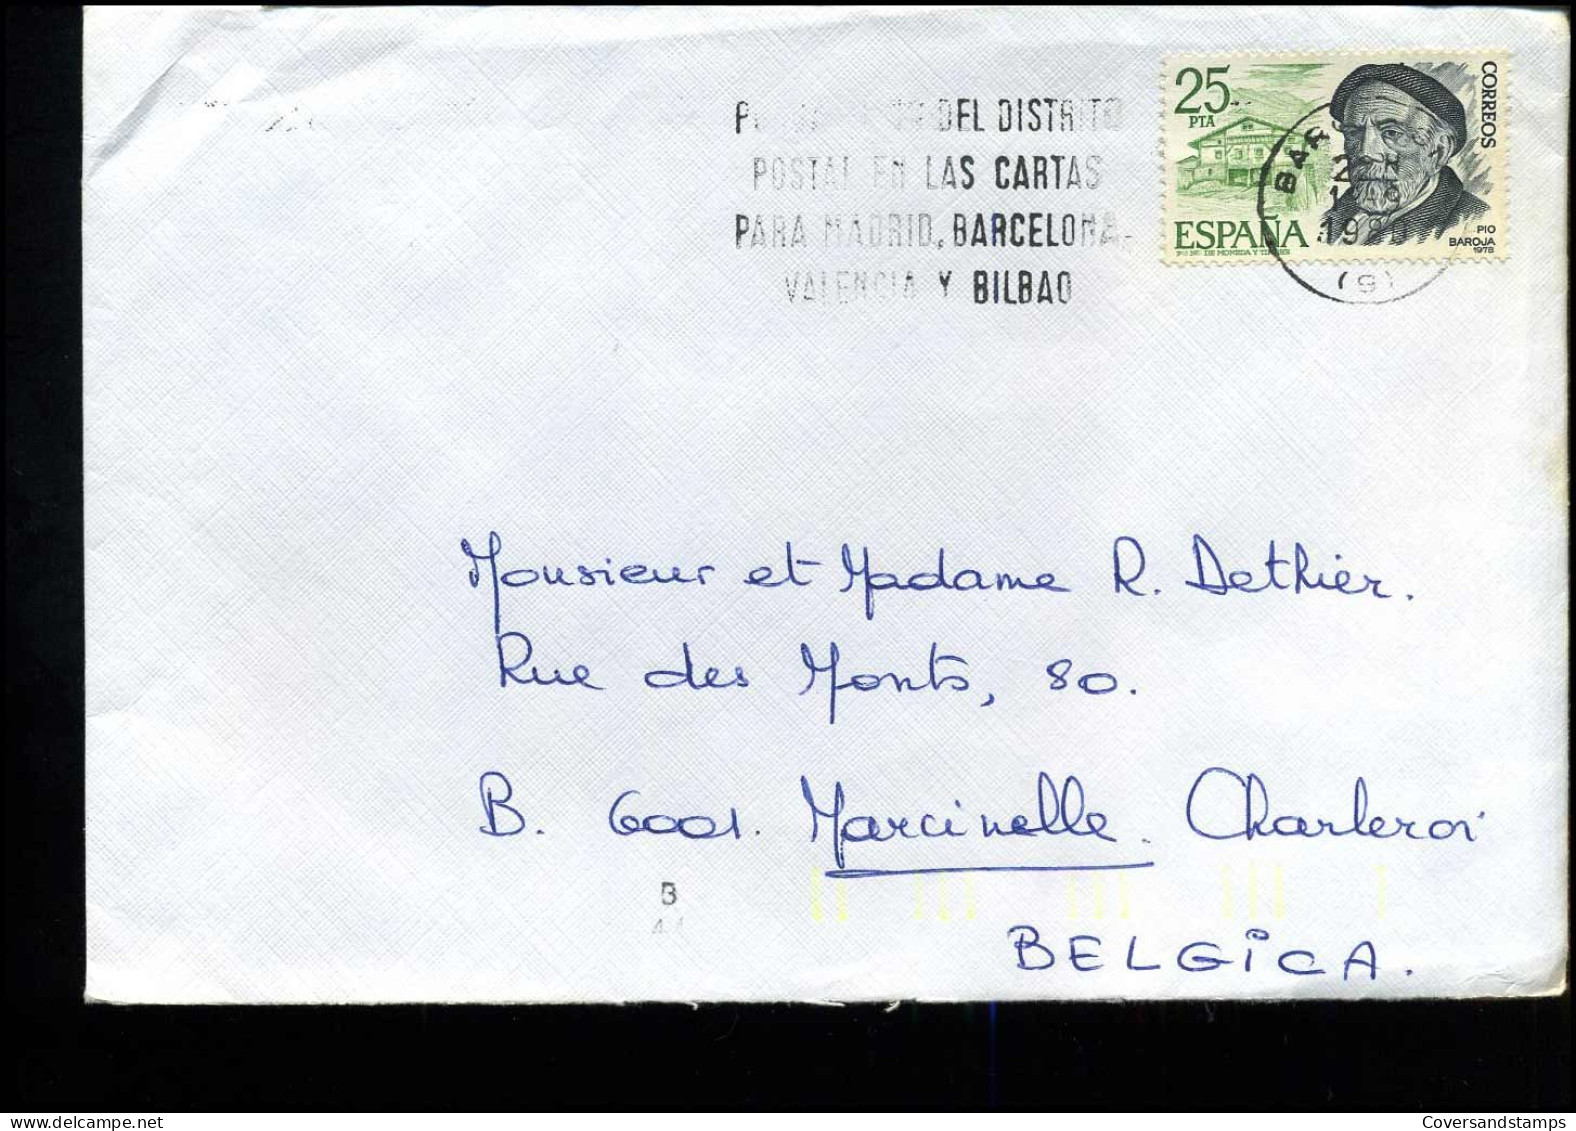 DEL DISTRITO
POSTAL EN LAS CARTAS
PARA MADRID, BARCELONA,
VALENCIA Y BILBAO
25
PTA
CORREOS
ESPAÑA
PIO
BAROJA
1978
DE MONEDA Y
1980
(9)
Monsieur et Madame R. Dethier.
Rue des Monts, 80.
B. 6001. Marcinelle. Charleroi
B
BELGICA.
Coversandstamps